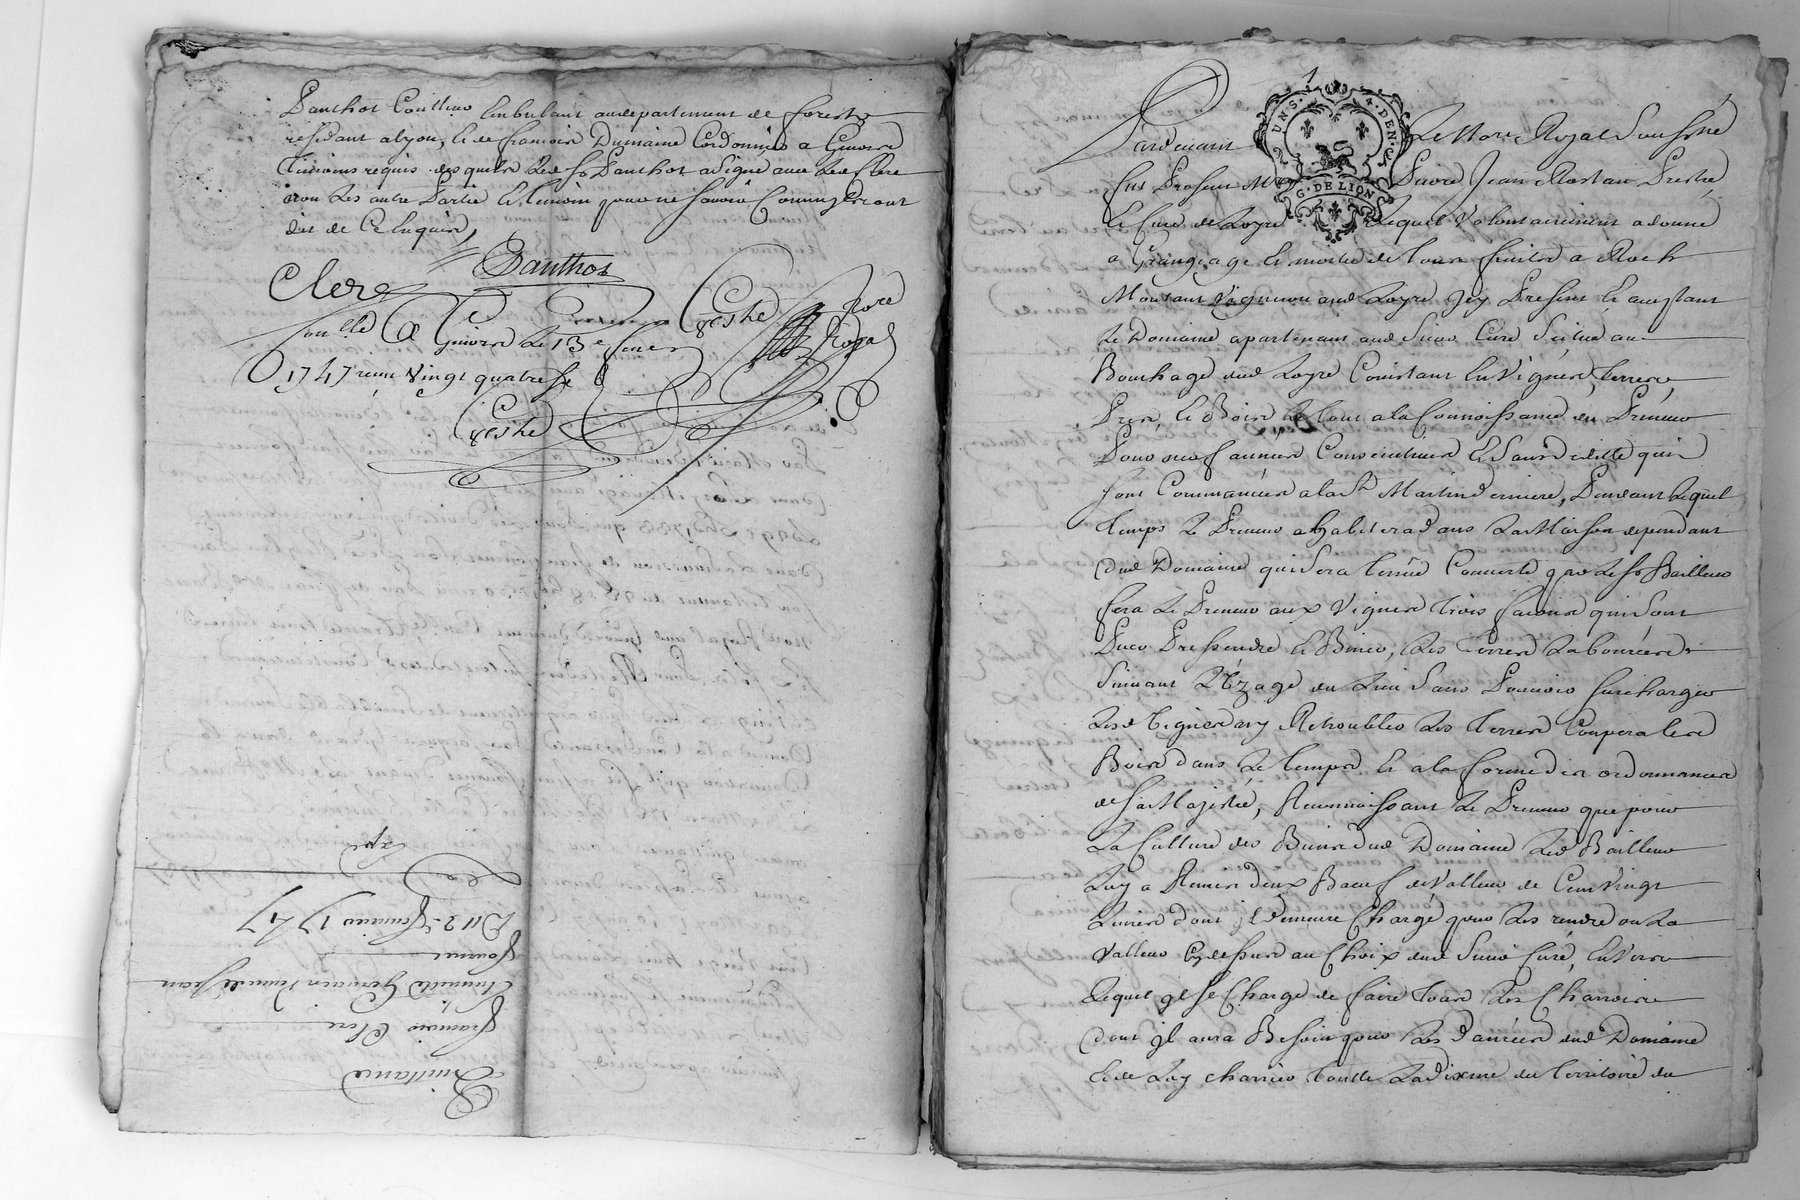 Panthot Conttrol. Embulant audepartement de forest
résidant a lyon, et de françois Dumaine Cordonnier a Givors
Témoins requis desquels Led. Sr Panthot a Signé avec Led. Clere
non Les autre Partie Et témoin pour ne Savoir
dit de Ce Enquis,
Clere
Panthot
Conllé a Givors Le 13e Janer
1747 reçu vingt quatre s.
Geste
Geste
Nore Royal
Quittance
françois Clere
Germain
Jean
Du 12e Janvier 1747
Expé
UN.S.4.DEN.
G. DE LION
Pardevant Le Nore Royal Soussigné
fut Présent Mre Pierre Jean Prestre
Et Curé de Loyre Lequel Volontairement a donné
a Grangeage Et moitié de Tous fruits a Roch
Moutant Vigneron aud. Loyre Icy Présent Et aceptant
Le Domaine apartenant aud. Sieur Curé Scitué au
Bourchage dud. Loyre Consistant En Vignes, terres,
Prés, Et Bois Le tout a la Connoissance du Preneur
Pour neuf années Consecutives Et Sans intervalle qui
sont Commancées a la St Martin Derniere, Pendant Lequel
temps Le Preneur abhabitera dans La Maison dependant
dud. Domaine qui Sera tenue Couverte par Le Sr Bailleur
fera Le Preneur aux Vignes trois façons qui Sont
Et Biner, Les terres Labourées
Suivant L'Uzage du Lieu Sans Pouvoir surcharger
Les. Vignes ny Retroubler Les terres Coupera Les
Bois dans Le temps Et a la forme des ordonnances
de Sa Majesté, Reconnoissant Le Preneur que pour
La Culture des Biens dud. Domaine Led. Bailleur
Luy a Remis deux Bœufs de Valleur de Cent Vingt
Livres dont il Demeure Chargé pour Les rendre ou La
Valleur Cy dessus au Choix dud. Sieur Curé, Envers
Lequel il Se Charge de faire tous Les Charrois
dont il aura Besoin pour Les Danrées dud. Domaine
Et de Luy charrier toutte La dixme du territoire du